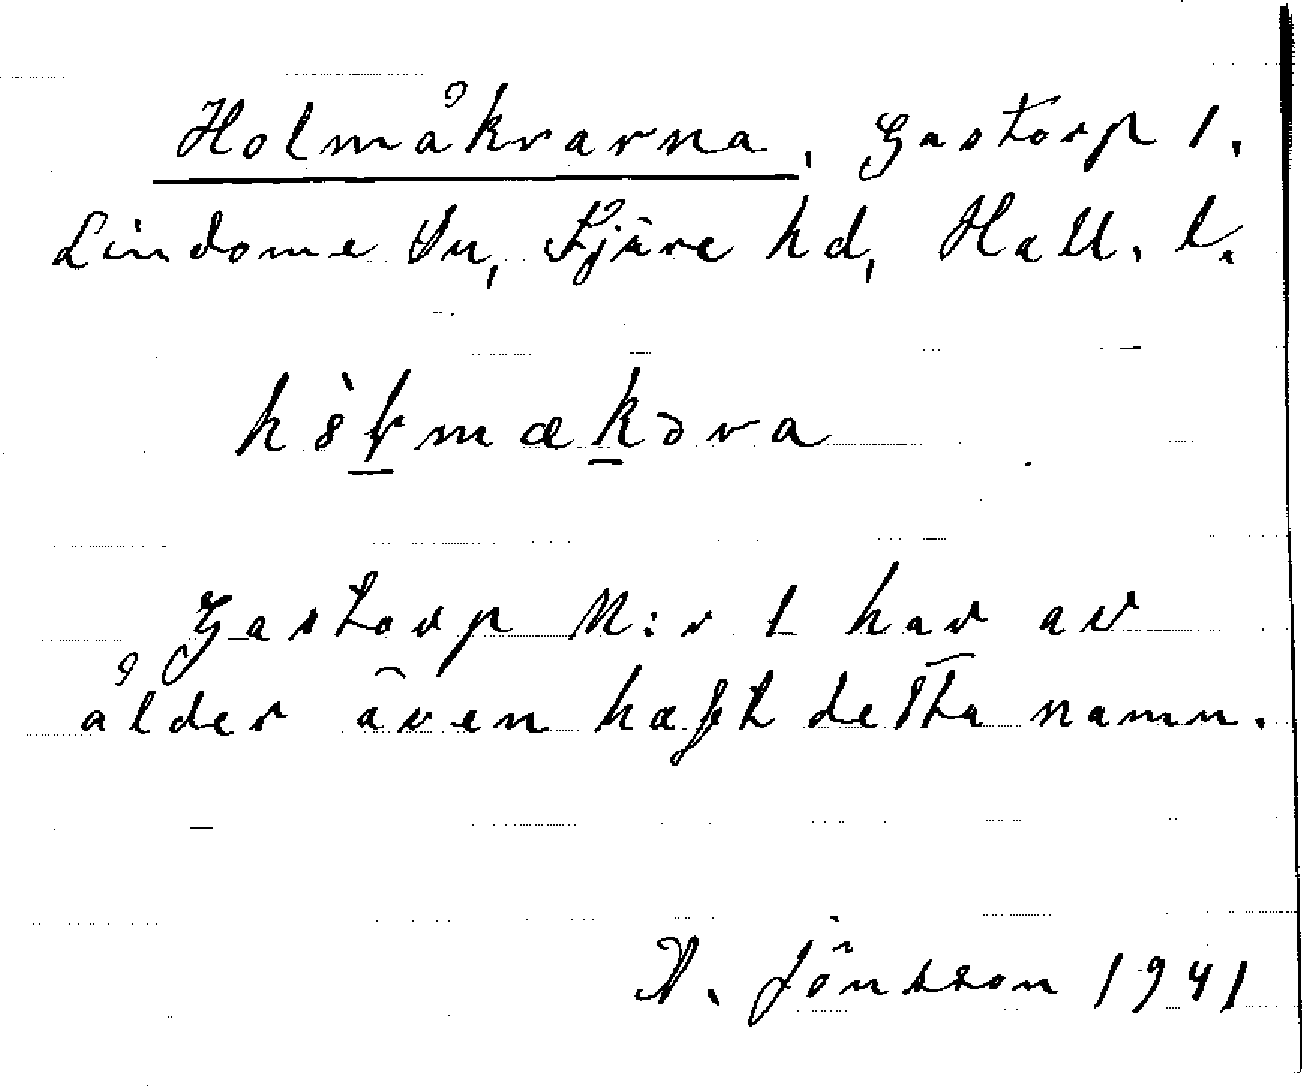 Holmåkvarna, Gastorp 1.
Lindome Sn, Fjäre hd, Hall. l.
Gastorp N:r 1 har av
ålder även haft detta namn.
A. Jönsson 1941